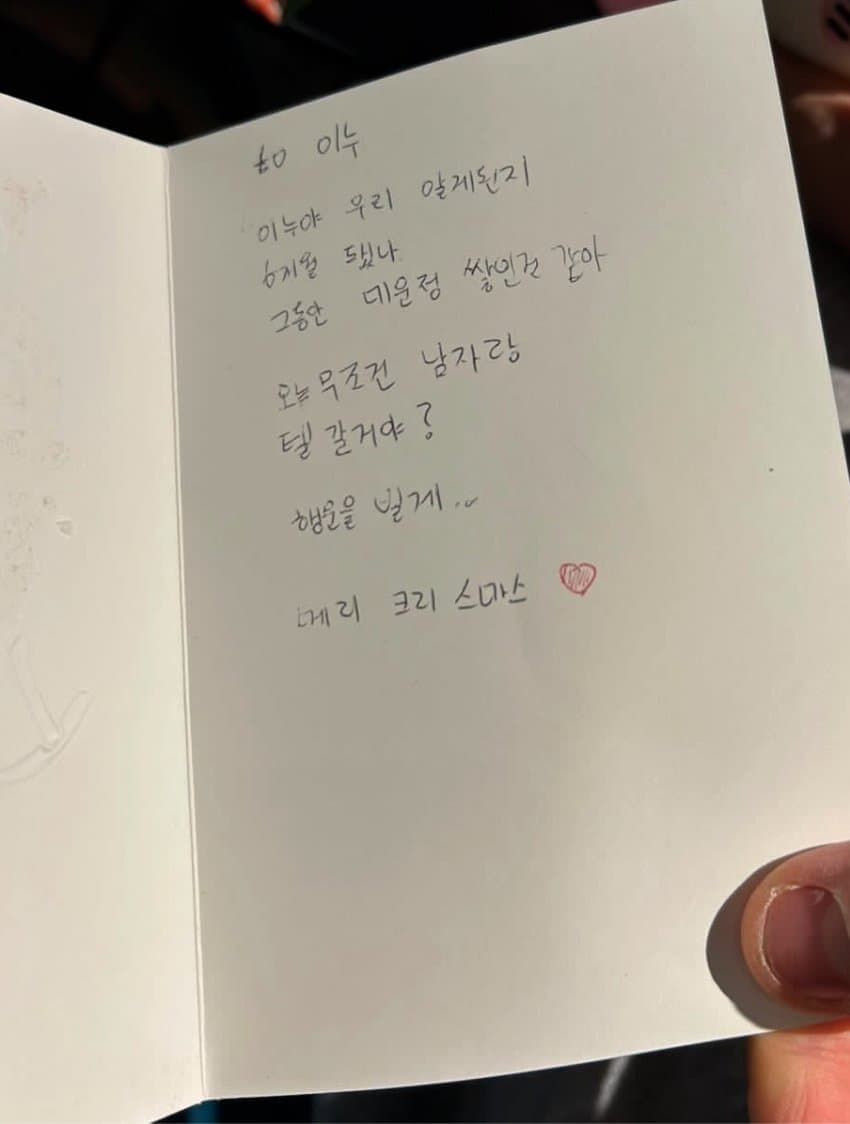 to 이누
이누야 우리 알게된지
6개월 됐나
그동안 미운정 쌓인건 같아
오늘 무조건 남자랑
텔 갈거야?
행운을 빌게..
메리 크리스마스 ♥